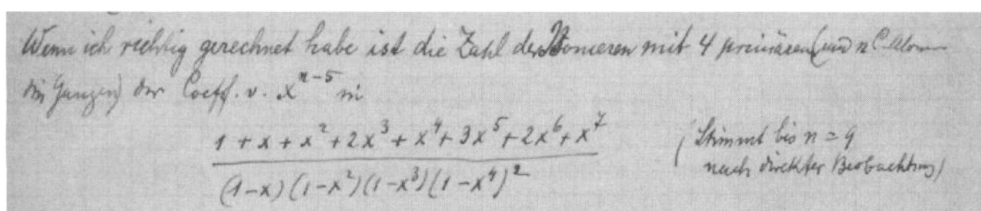 Wenn ich richtig gerechnet habe ist die Zahl der Isomeren mit 4 primären (und n C-Atomen
im Ganzen) der Coeff. v. x^{n-5} in
1 + x + x² + 2x³ + x⁴ + 3x⁵ + 2x⁶ + x⁷
(1-x)(1-x²)(1-x³)(1-x⁴)²
(Stimmt bis n = 9
nach direkter Beobachtung)